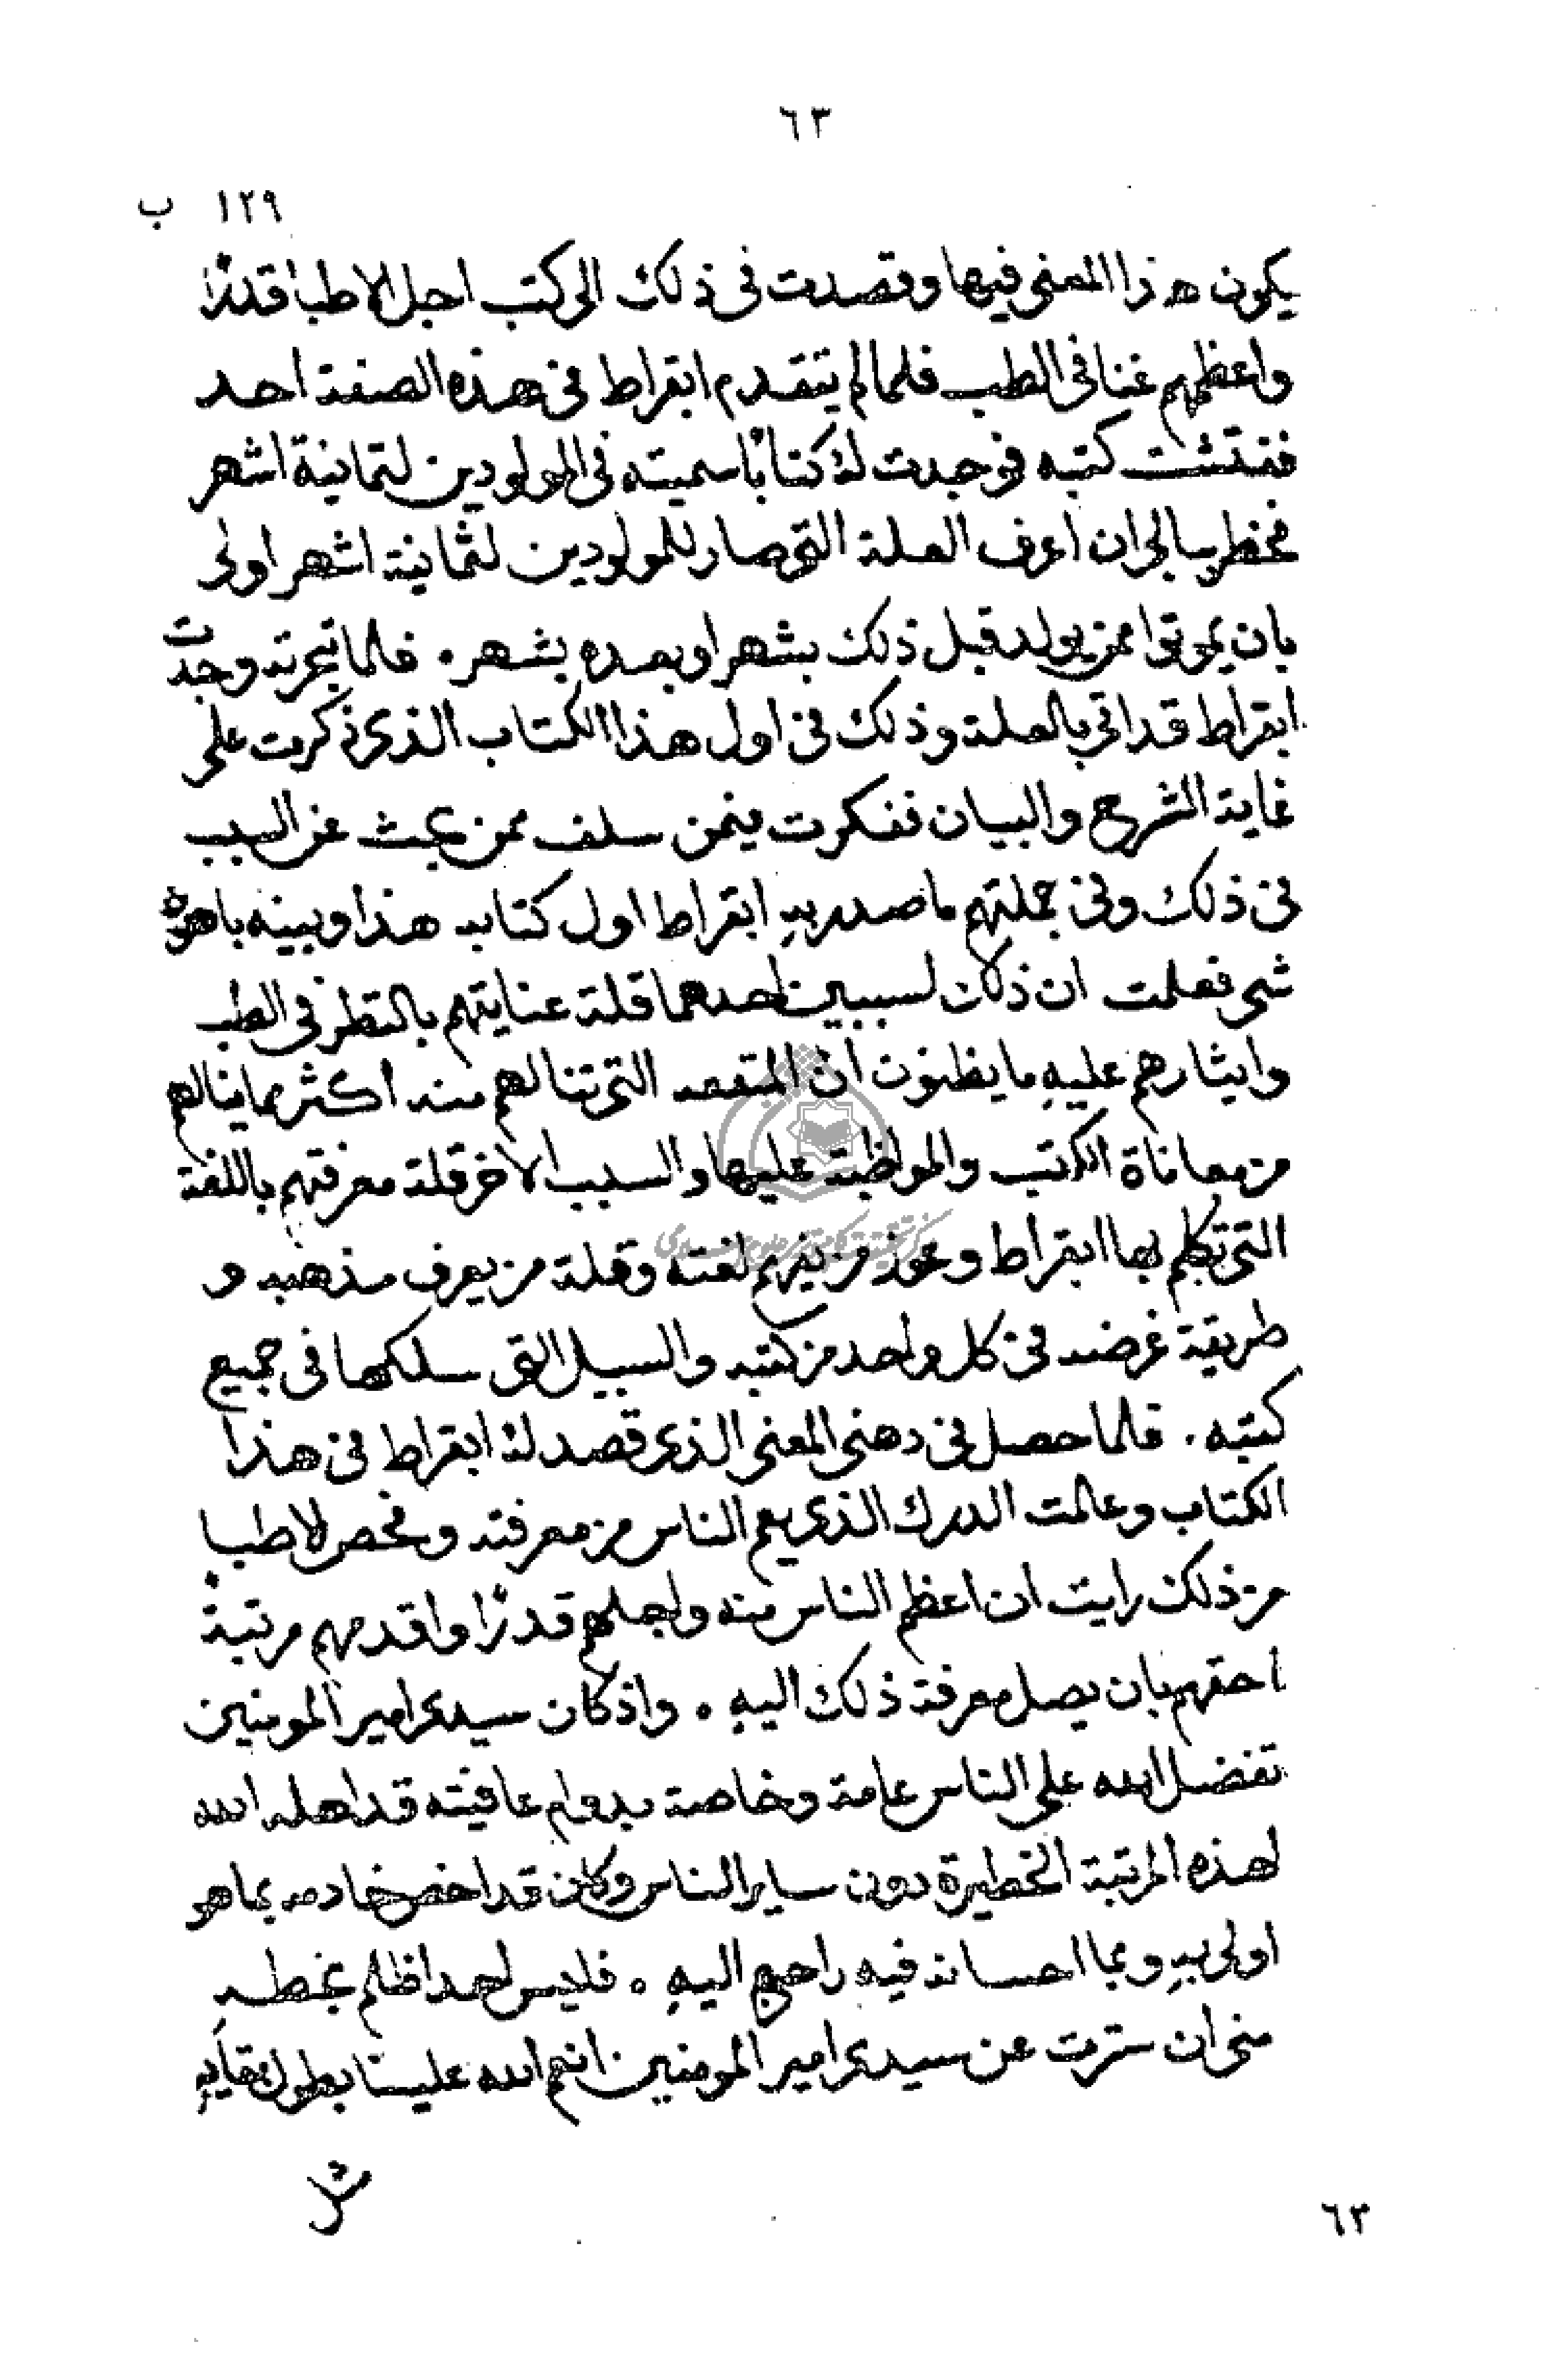 ٦٣
١٢٩ ب
يكون هذا المعنى فيها وقصدت فى ذلك الى كتب اجل الاطبا قدرًا
واعظمهم غنا فى الطب فلما لم يتقدم ابقراط فى هذه الصفة احد
ففتشت كتبه فوجدت له كتابًا سميته فى المولودين لثمانية اشهر
فخطر ببالى ان اعرف العلة التى صار للمولودين لثمانية اشهر اولى
بان يموتوا ممن يولد قبل ذلك بشهر او بعده بشهر . فلما تبحرته وجدت
ابقراط قد اتى بالعلة وذلك فى اول هذا الكتاب الذى ذكرت على
غاية الشرح والبيان ففكرت فيمن سلف ممن بحث عن السبب
فى ذلك وفى جملتهم ما صدر به ابقراط اول كتابه هذا وبينه باهون
شى فعلمت ان ذلك لسببين احدهما قلة عنايتهم بالنظر فى الطب
وايثارهم عليه ما يظنون ان المنفعة التى تنالهم منه أكثر مما ينالهم
من معاناة الكتب والمواظبة عليها والسبب الاخر قلة معرفتهم باللغة
التى تكلم بها ابقراط وعوز من يفهم لغته وقلة من يعرف مذهبه و
طريقة غرضه فى كل واحد من كتبه والسبيل التى سلكها فى جميع
كتبه . فلما حصل فى دهنى المعنى الذى قصد له ابقراط فى هذا
الكتاب وعالمت الدرك الذى يعم الناس من معرفته ويخص الاطبا
من ذلك رايت ان اعظم الناس منه واجلهم قدرًا واقدمهم مرتبة
احقهم بان يصل معرفة ذلك اليه . واذ كان سيدى امير المومنين
تفضل الله على الناس عامة وخاصة بدوام عافيته قد اهله الله
لهذه المرتبة الخطيرة دون ساير الناس وكان قد اخص خادمه بما هو
اولى به وبما احسانه فيه راجع اليه . فليس احد اظلم بخطه
منى ان سترت عن سيدى امير المومنين انعم الله علينا بطول بقايه
٦٣